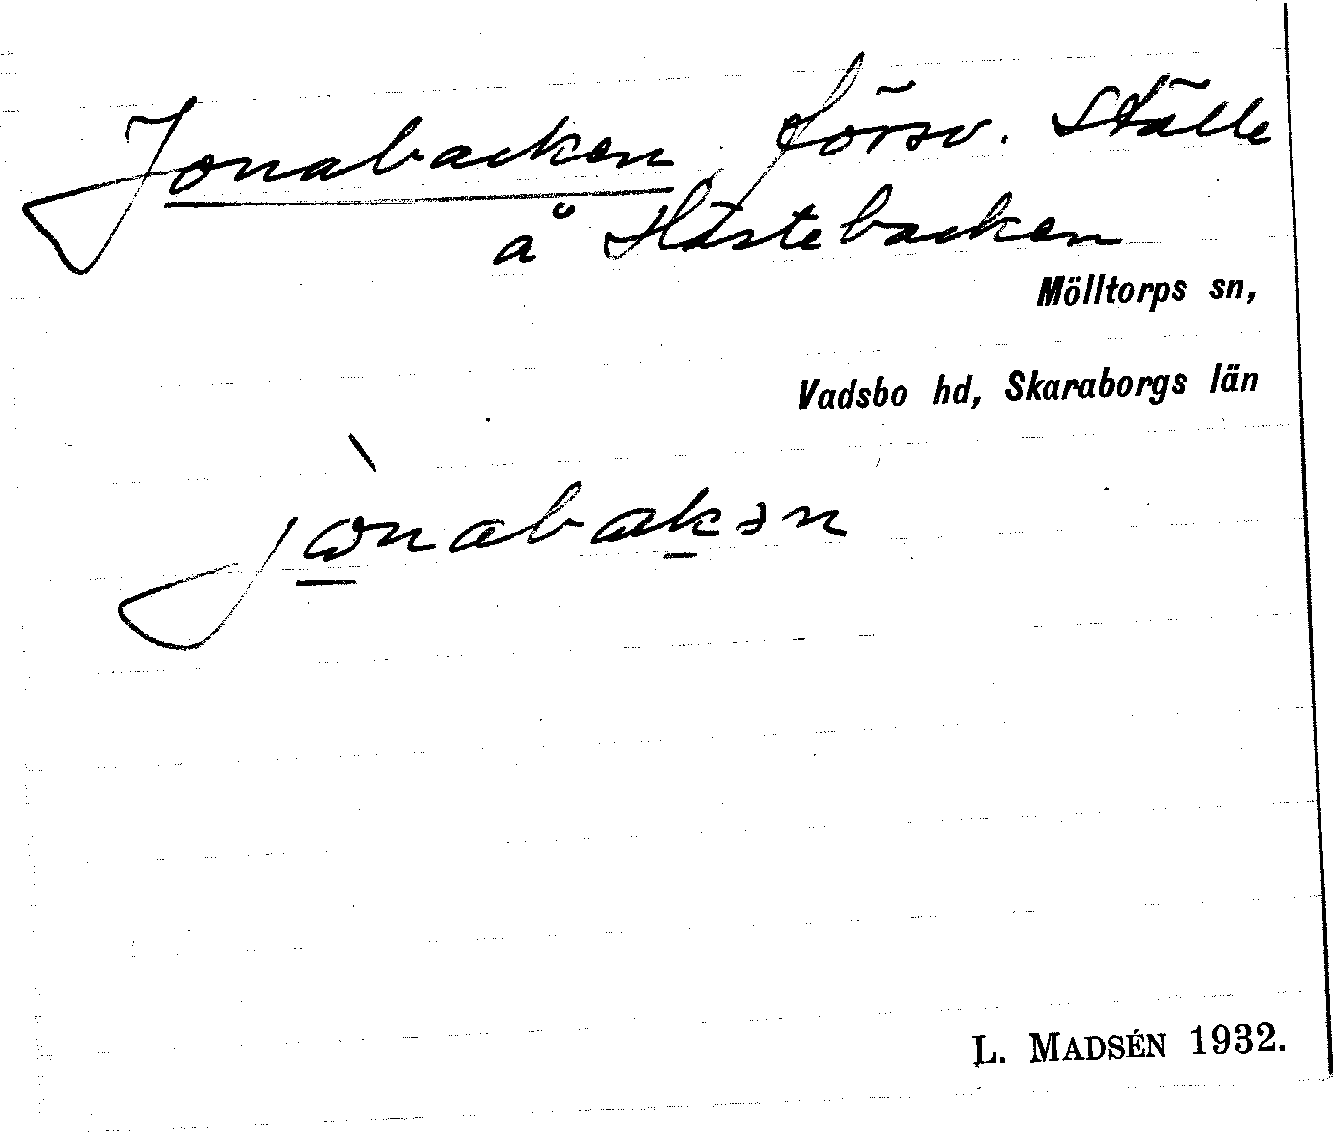 Jonabacken, försv. Ställe
å Hästebacken
Mölltorps sn,
Vadsbo hd, Skaraborgs län
L. MADSÉN 1932.